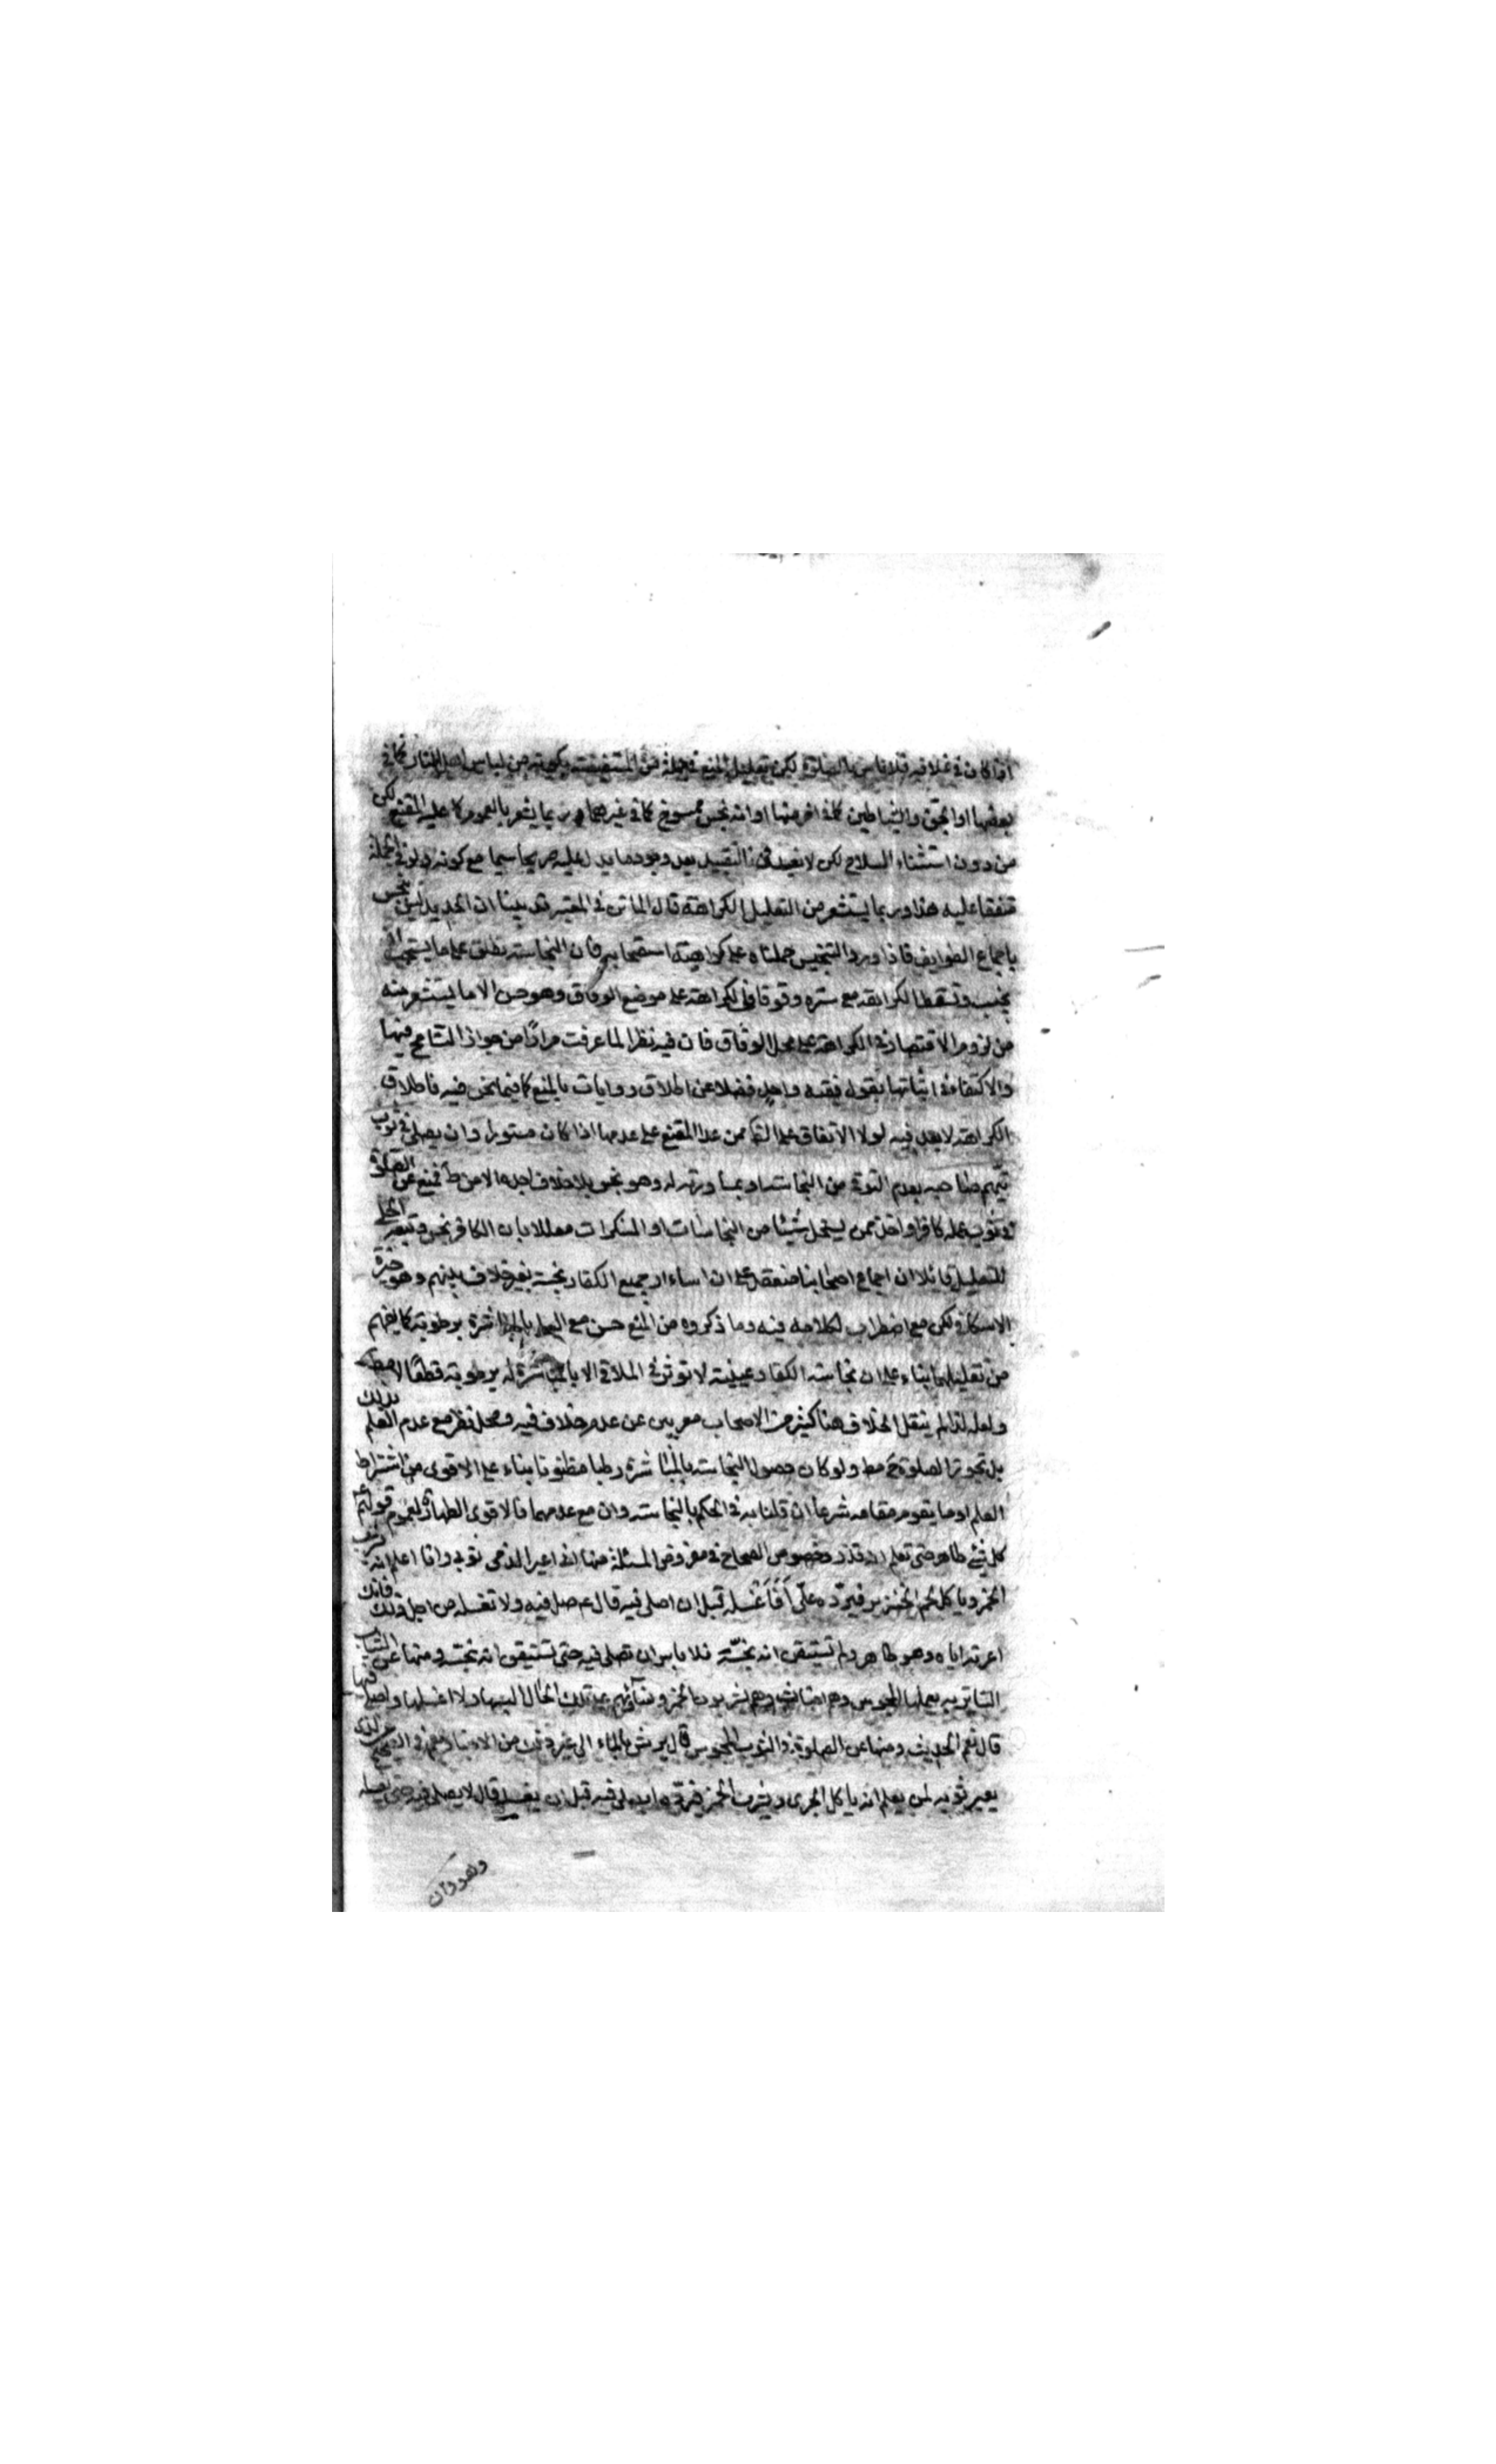 اذا كان في غلافه فلا باس بالصلوة لكن تعليل المنع في جملة من المستفيضة بكونه من لباس اهل النار كما في
بعضها او الجن والشياطين كما في اخر منها او انه نجس ممسوخ كما في غيرهما ربما يشعر بالعموم كما عليه المقنع لكن
من دون استثناء السلاح لكن لا بعد في التقييد بعد وجود ما يدل عليه صريحا سيما مع كونه ولو في الجملة
متفقا عليه هذا وربما يستشعر من التعليل الكراهة قال الماتن في المعتبر قد بينا ان الحديد ليس بنجس
باجماع الطوايف فاذا ورد التنجيس حملناه على كراهية استصحابه فان النجاسة تطلق على ما يستحب ان
يجتنب وتسقط الكراهة مع ستره وقوفا في الكراهة على موضع الوفاق وهو حسن الا ما يستشعر منه
من لزوم الاقتصار في الكراهة على محل الوفاق فان فيه نظرا لما عرفت مرارا من جواز التسامح فيها
والاكتفاء في اثباتها بقول فقيه واحد فضلا عن اطلاق روايات بالمنع كما فيما نحن فيه فاطلاق
الكراهة لا بعد فيه لولا الاتفاق على الظ ممن عدا المقنع على عدمها اذا كان مستورا وان يصلي في ثوب
يتهم صاحبه بعدم التوقي من النجاسات وهو بلا خلاف اجده الا من ط فمنع عن الصلوة
في ثوب عمله كافر او اخذ ممن يستحل شيئا من النجاسات او المسكرات معللا بان الكافر نجس وتبعه الحلي
للتعليل قائلا ان اجماع اصحابنا منعقد على ان اساءار جميع الكفار نجسة بغير خلاف بينهم وهو خيرة
الاسكافي لكن مع اضطراب لكلامه فيه وما ذكروه من المنع حسن مع العلم بالمباشرة برطوبة كما يفهم
من تعليلهما بناء على ان نجاسة الكفار عينية لا تؤثر في الملاقي الا بالمباشرة له برطوبة قطعا لا مط
ولعله لذا لم ينقل الخلاف هنا كثير من الاصحاب معربين عن عدم خلاف فيه ومحل نظر مع عدم العلم بذلك
بل تجوز الصلوة ح مط ولو كان حصول النجاسة بالمباشرة رطبا مظنونا بناء على الاقوى من اشتراط
العلم او ما يقوم مقامه شرعا ان قلنا به في الحكم بالنجاسة وان مع عدمهما فالاقوى الطهارة لعموم قولهم ع
كل شيء طاهر حتى تعلم انه قذر وخصوص الصحاح في مفروض المسئلة منها اني اعير الذمي ثوبي وانا اعلم انه يشرب
الخمر وياكل لحم الخنزير فيرده علي افاغسله قبل ان اصلي فيه قال ع صل فيه ولا تغسله من اجل ذلك فانك
اعرته اياه وهو طاهر ولم تستيقن انه نجسه فلا باس ان تصلي فيه حتى تستيقن انه نجسه ومنها عن الثياب
السابرية يعملها المجوس وهم اخباث وهم يشربون الخمر ونسائهم على تلك الحال البسها ولا اغسلها واصلي فيها
قال نعم الحديث ومنها عن الصلوة في الثوب المجوس قال يرش بالماء الى غير ذلك من الاخبار نعم في الصحيح عن الذي
يعير ثوبه لمن يعلم انه ياكل الجري ويشرب الخمر فيرده ايصلي فيه قبل ان يغسله قال لا يصلي فيه حتى يغسله